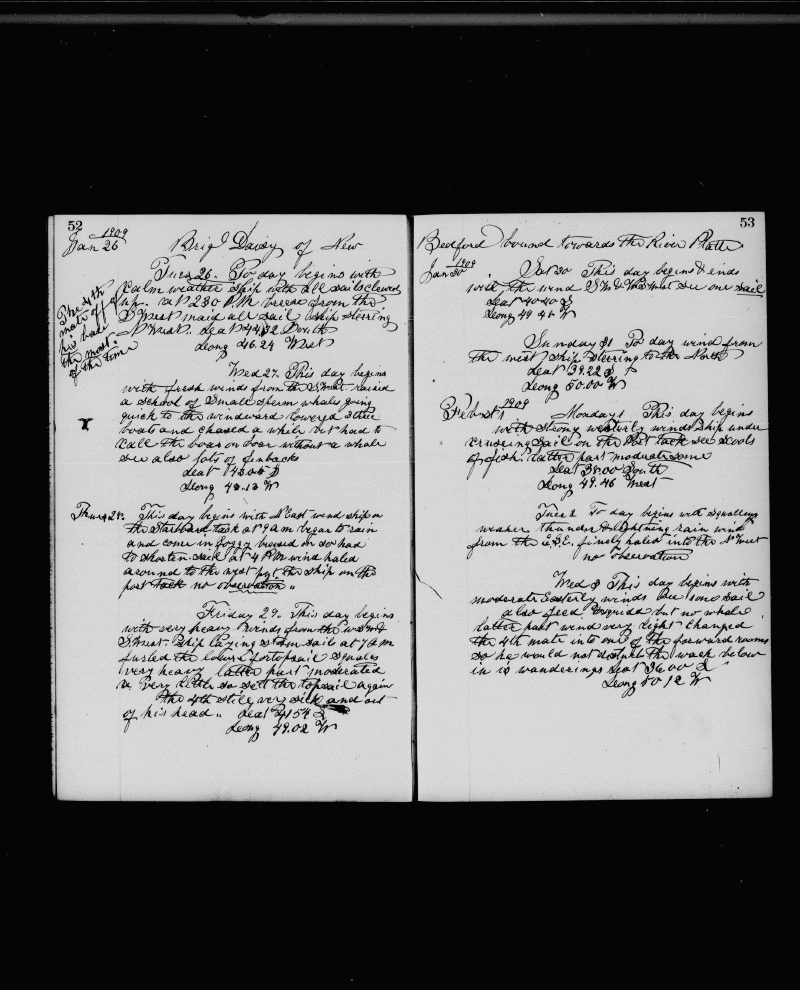 52
1909
Jan 26
Brig Daisy of New
Tues 26. To day begins with
Calm weather ship with all sails clewed
up. at 2 30 P.M breese from the
S West maid all sail ship sterring
N West. Leat 44.32 South
Leong 46.24 West
The 4th
mate off
his head
the most
of the time
Wed 27. This day begins
with fresh winds from the S West. raised
a school of small sperm whales going
quick to the windward lowerd 3 the
boats and chased a while but had to
call the boas on boar without a whale
see also lots of finbacks
Leat 43.05 S
Leong 48.13 W
Thurs 28. This day begins with N East wind ship on
the Starboard tack at 9 am began to rain
and come in foggy breesed on so had
to shorten sail at 4 P M wind haled
around to the west put the ship on the
port tack no observation "
Friday 29. This day begins
with very heavy winds from the W S W &
S West. Ship laying storm sail at 7 am
furled the lower fortopsail squales
very heavy latter part moderated
a very little so sett the topsail again
the 4th still very sick and out
of his head " Leat 41 54 S
Leong 49.02 W
53
Bedford bound towards the River Platte
1909
Jan 30
Sat 30 This day begins & ends
with the wind S W & W S West see one sail
Leat 40 40 S
Leong 49 45 W
Sunday 31 To day wind from
the west ship sterring to the North
Leat 39.22 S
Leong 50.00 W
1909
Feb 1st
Monday 1 This day begins
with strong westerly winds ship under
crusing sail on the Port tack see scools
of fish. latter part moderate some
Leat 38.00 South
Leong 49.46 West
Tues 2 To day begins with squally
weaher thunder & lightning rain wind
from the E.S.E. finely haled into the N West
no observation
Wed 3 This day begins with
moderate Easterly winds see one sail
also seed squids but no whale
latter part wind very light changed
the 4th mate into one of the forward rooms
so he would not disturb the wach below
in is wanderings Leat 36.00 S
Leong 50 12 W